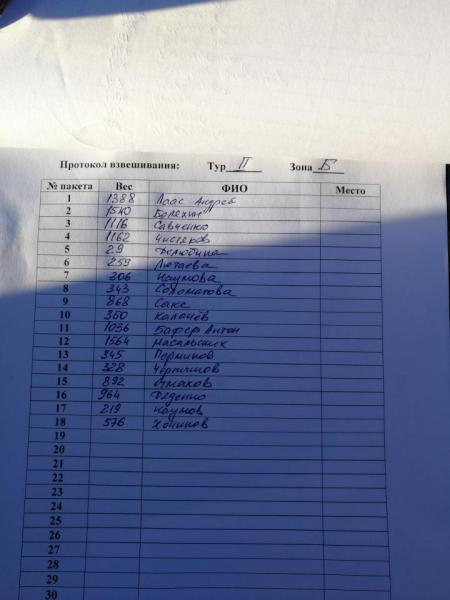 Протокол взвешивания: Тур II Зона Б
№ пакета Вес ФИО Место
1 1388 Лаас Андрей
2 1540 Болехин
3 1116 Савченко
4 1162 Чистяков
5 29
6 259 Лютаева
7 306 Наумова
8 343 Соломатова
9 868 Сакс
10 360 Калачёв
11 1036 Бафер Антон
12 1564
13 345 Перминов
14 328
15 892
16 964 Феденко
17 219 Наумов
18 576
19
20
21
22
23
24
25
26
27
28
29
30